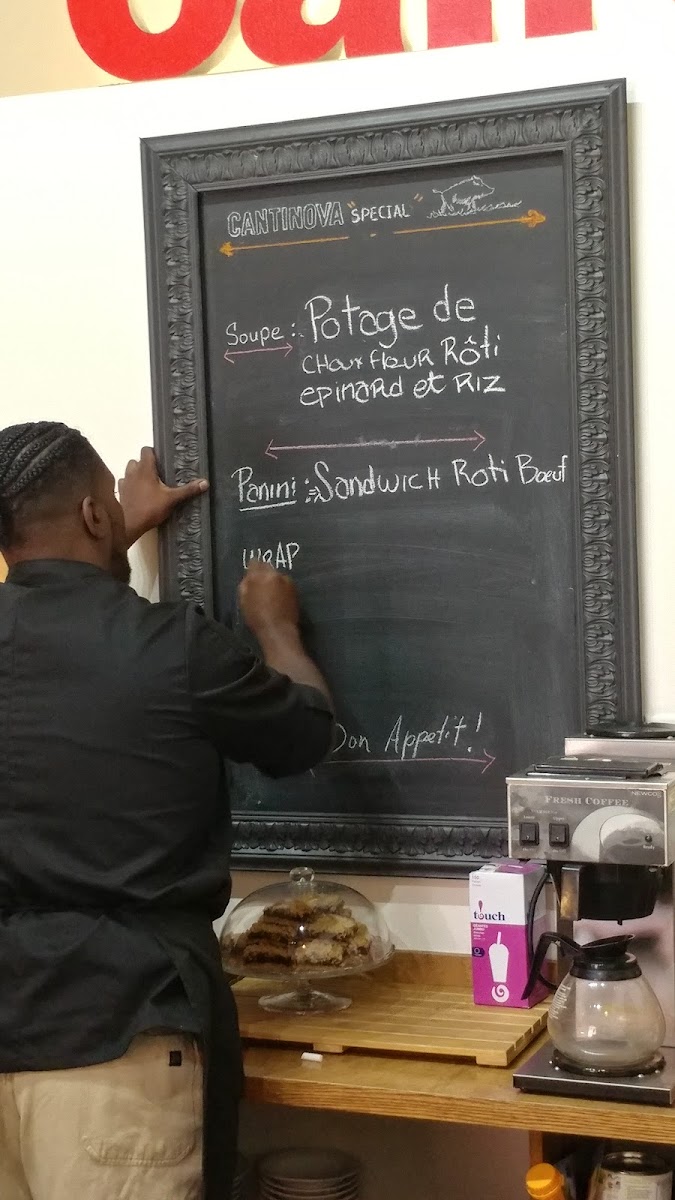 CANTINOVA "SPECIAL"
Soupe : Potage de
CHOUX fLEUR Rôti
epinard et RIZ
Panini : Sandwich Roti Bœuf
WRAP
Bon Appetit!
FRESH COFFEE
NEWCO
touch